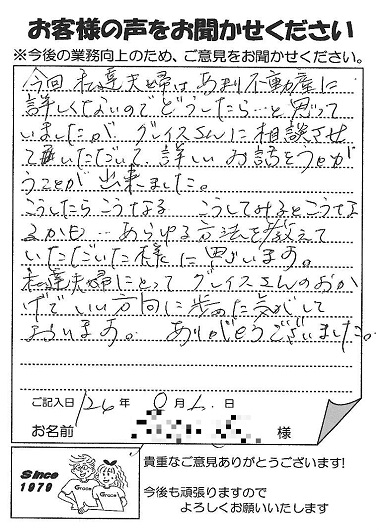 お客様の声をお聞かせください
※今後の業務向上のため、ご意見をお聞かせください。
今回私達夫婦はあまり不動産に
詳しくないのでどうしたら…と思って
いましたが グレイスさんに相談させ
て頂いただいて 詳しいお話をうかが
うことが出来ました。
こうしたらこうなる こうしてみるとこうな
るかも… あらゆる方法を教えて
いただいた様に思います。
私達夫婦にとって グレイスさんのおか
げでいい方向に歩めた気がして
おります。 ありがとうございました。
ご記入日 年 月 日
お名前 様
Since
1979
Grace
Grace
貴重なご意見ありがとうございます!
今後も頑張りますので
よろしくお願いいたします